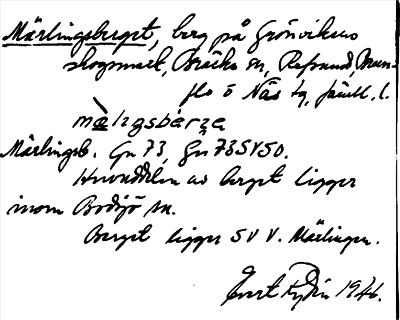 Märlingsberget, berg på Grönvikens
skogsmark, Bräcke sn, Refsund, Brun-
flo o Näs tg, Jämtl. l.
Märlingsb. Gk 73, Gk 73SV50.
Huvuddelen av berget ligger
inom Bodsjö sn.
Berget ligger SV V. Märlingen.
Evert Rydin 1946.